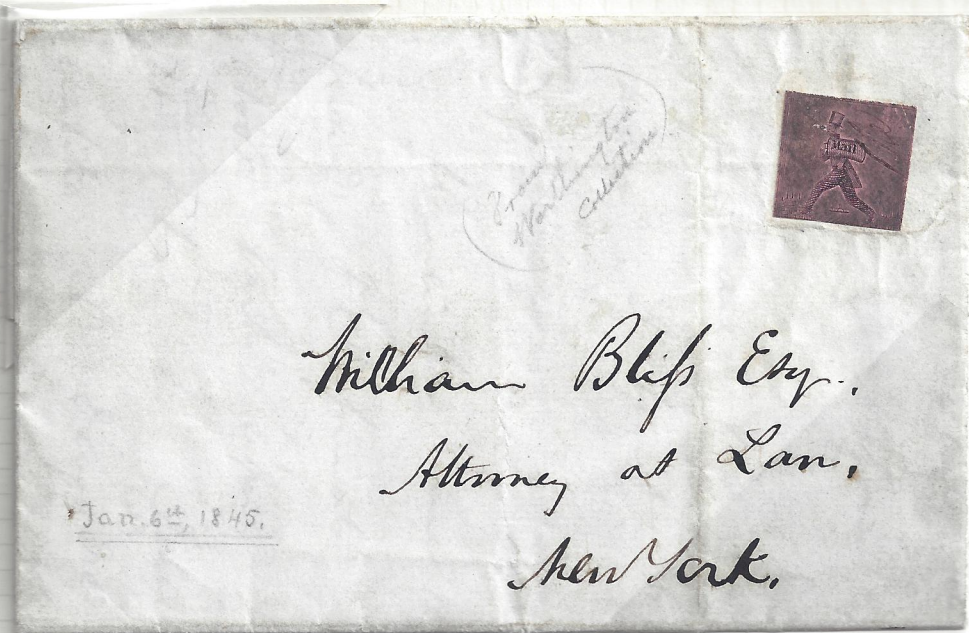 From
Worthington
Collection
Mail
William Bliſs Esq.,
Attorney at Law.
New York.
Jan. 6th, 1845.